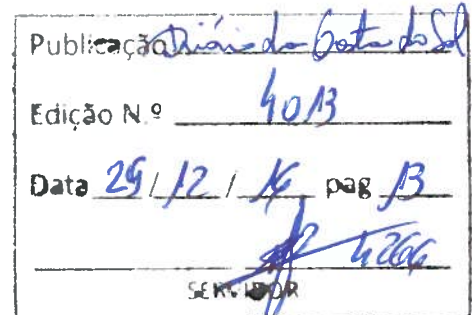 Publicação Diário da Costa do Sol
Edição N.º 4013
Data 29/12/16 pag 13
4266
SERVIDOR